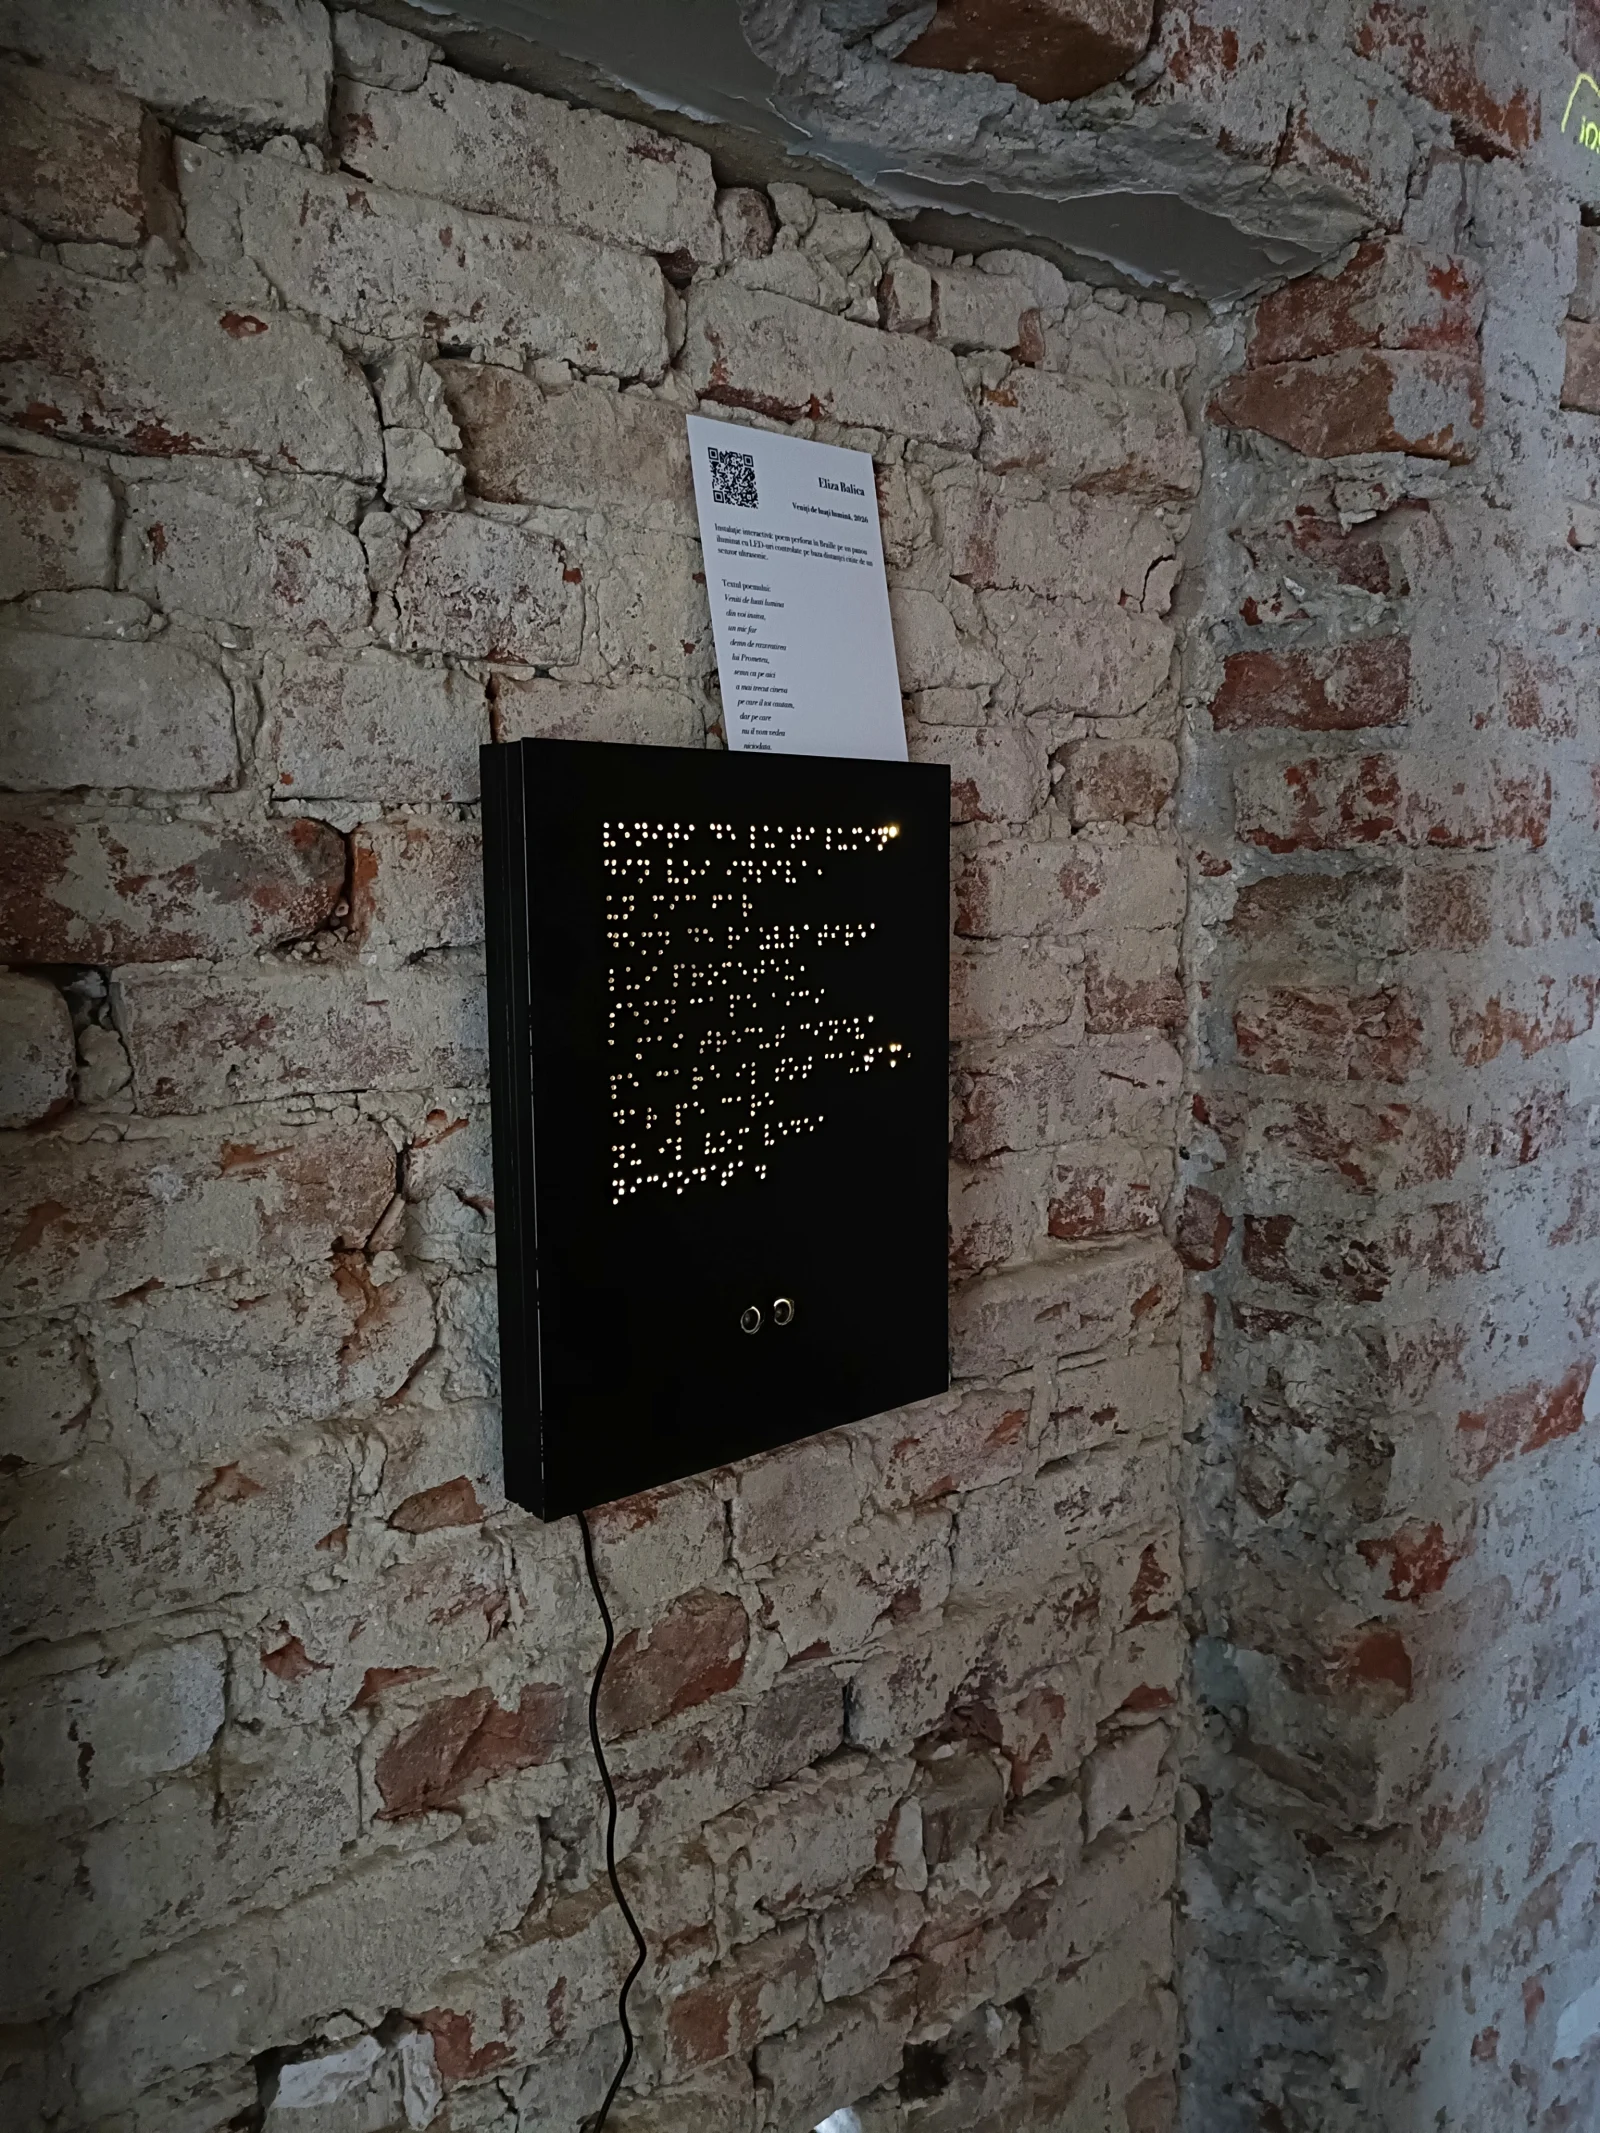 Eliza Balica
Veniți de luați lumină, 2026
Instalație interactivă: poem perforat în Braille pe un panou
iluminat cu LED-uri controlate pe baza distanței citite de un
senzor ultrasonic.
Textul poemului:
Veniti de luati lumina
din voi insiva,
un mic far
demn de razvratirea
lui Prometeu,
semn ca pe aici
a mai trecut cineva
pe care il tot cautam,
dar pe care
nu il vom vedea
niciodata.